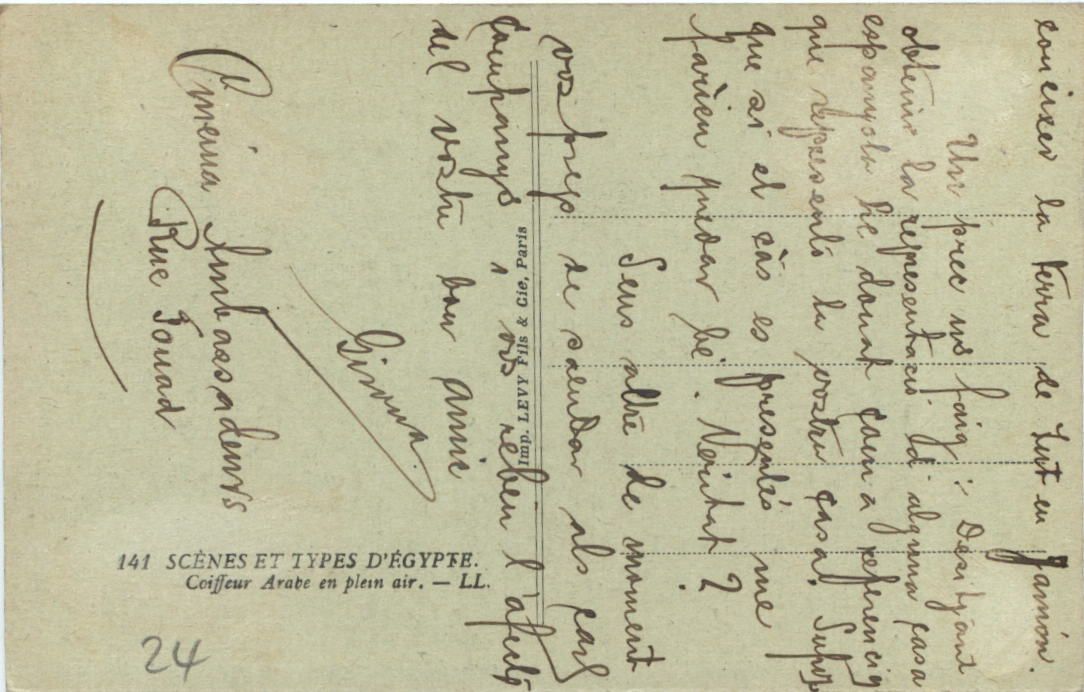 coneixer la terra de Tut en Jamón.
Un prec us faig: Desitjant
obtenir la representació d'alguna casa
espanyola he donat com a referencia
que represento la vostra casa. Supo
que si el cas es presentés me
farien quedar bé. Veritat?
Sens altre de moment
vos prego de saludar als
companys i vos reben l'
del vostre bon amic
Girona
Cinema Ambassadeurs
Rue Fouad
Imp. LEVY Fils & Cie, Paris
141 SCÈNES ET TYPES D'ÉGYPTE.
Coiffeur Arabe en plein air. — LL.
24